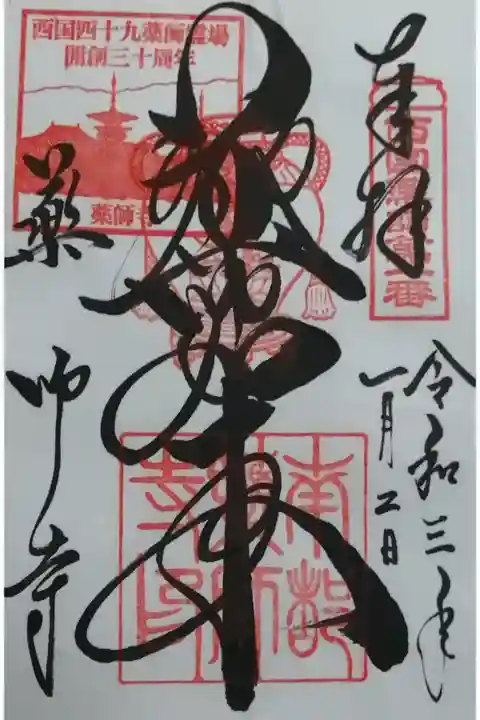 奉拝
西国薬師第一番
令和三年
一月二日
西国四十九薬師霊場
開創三十周年
薬師寺
南都薬師寺印
薬師寺